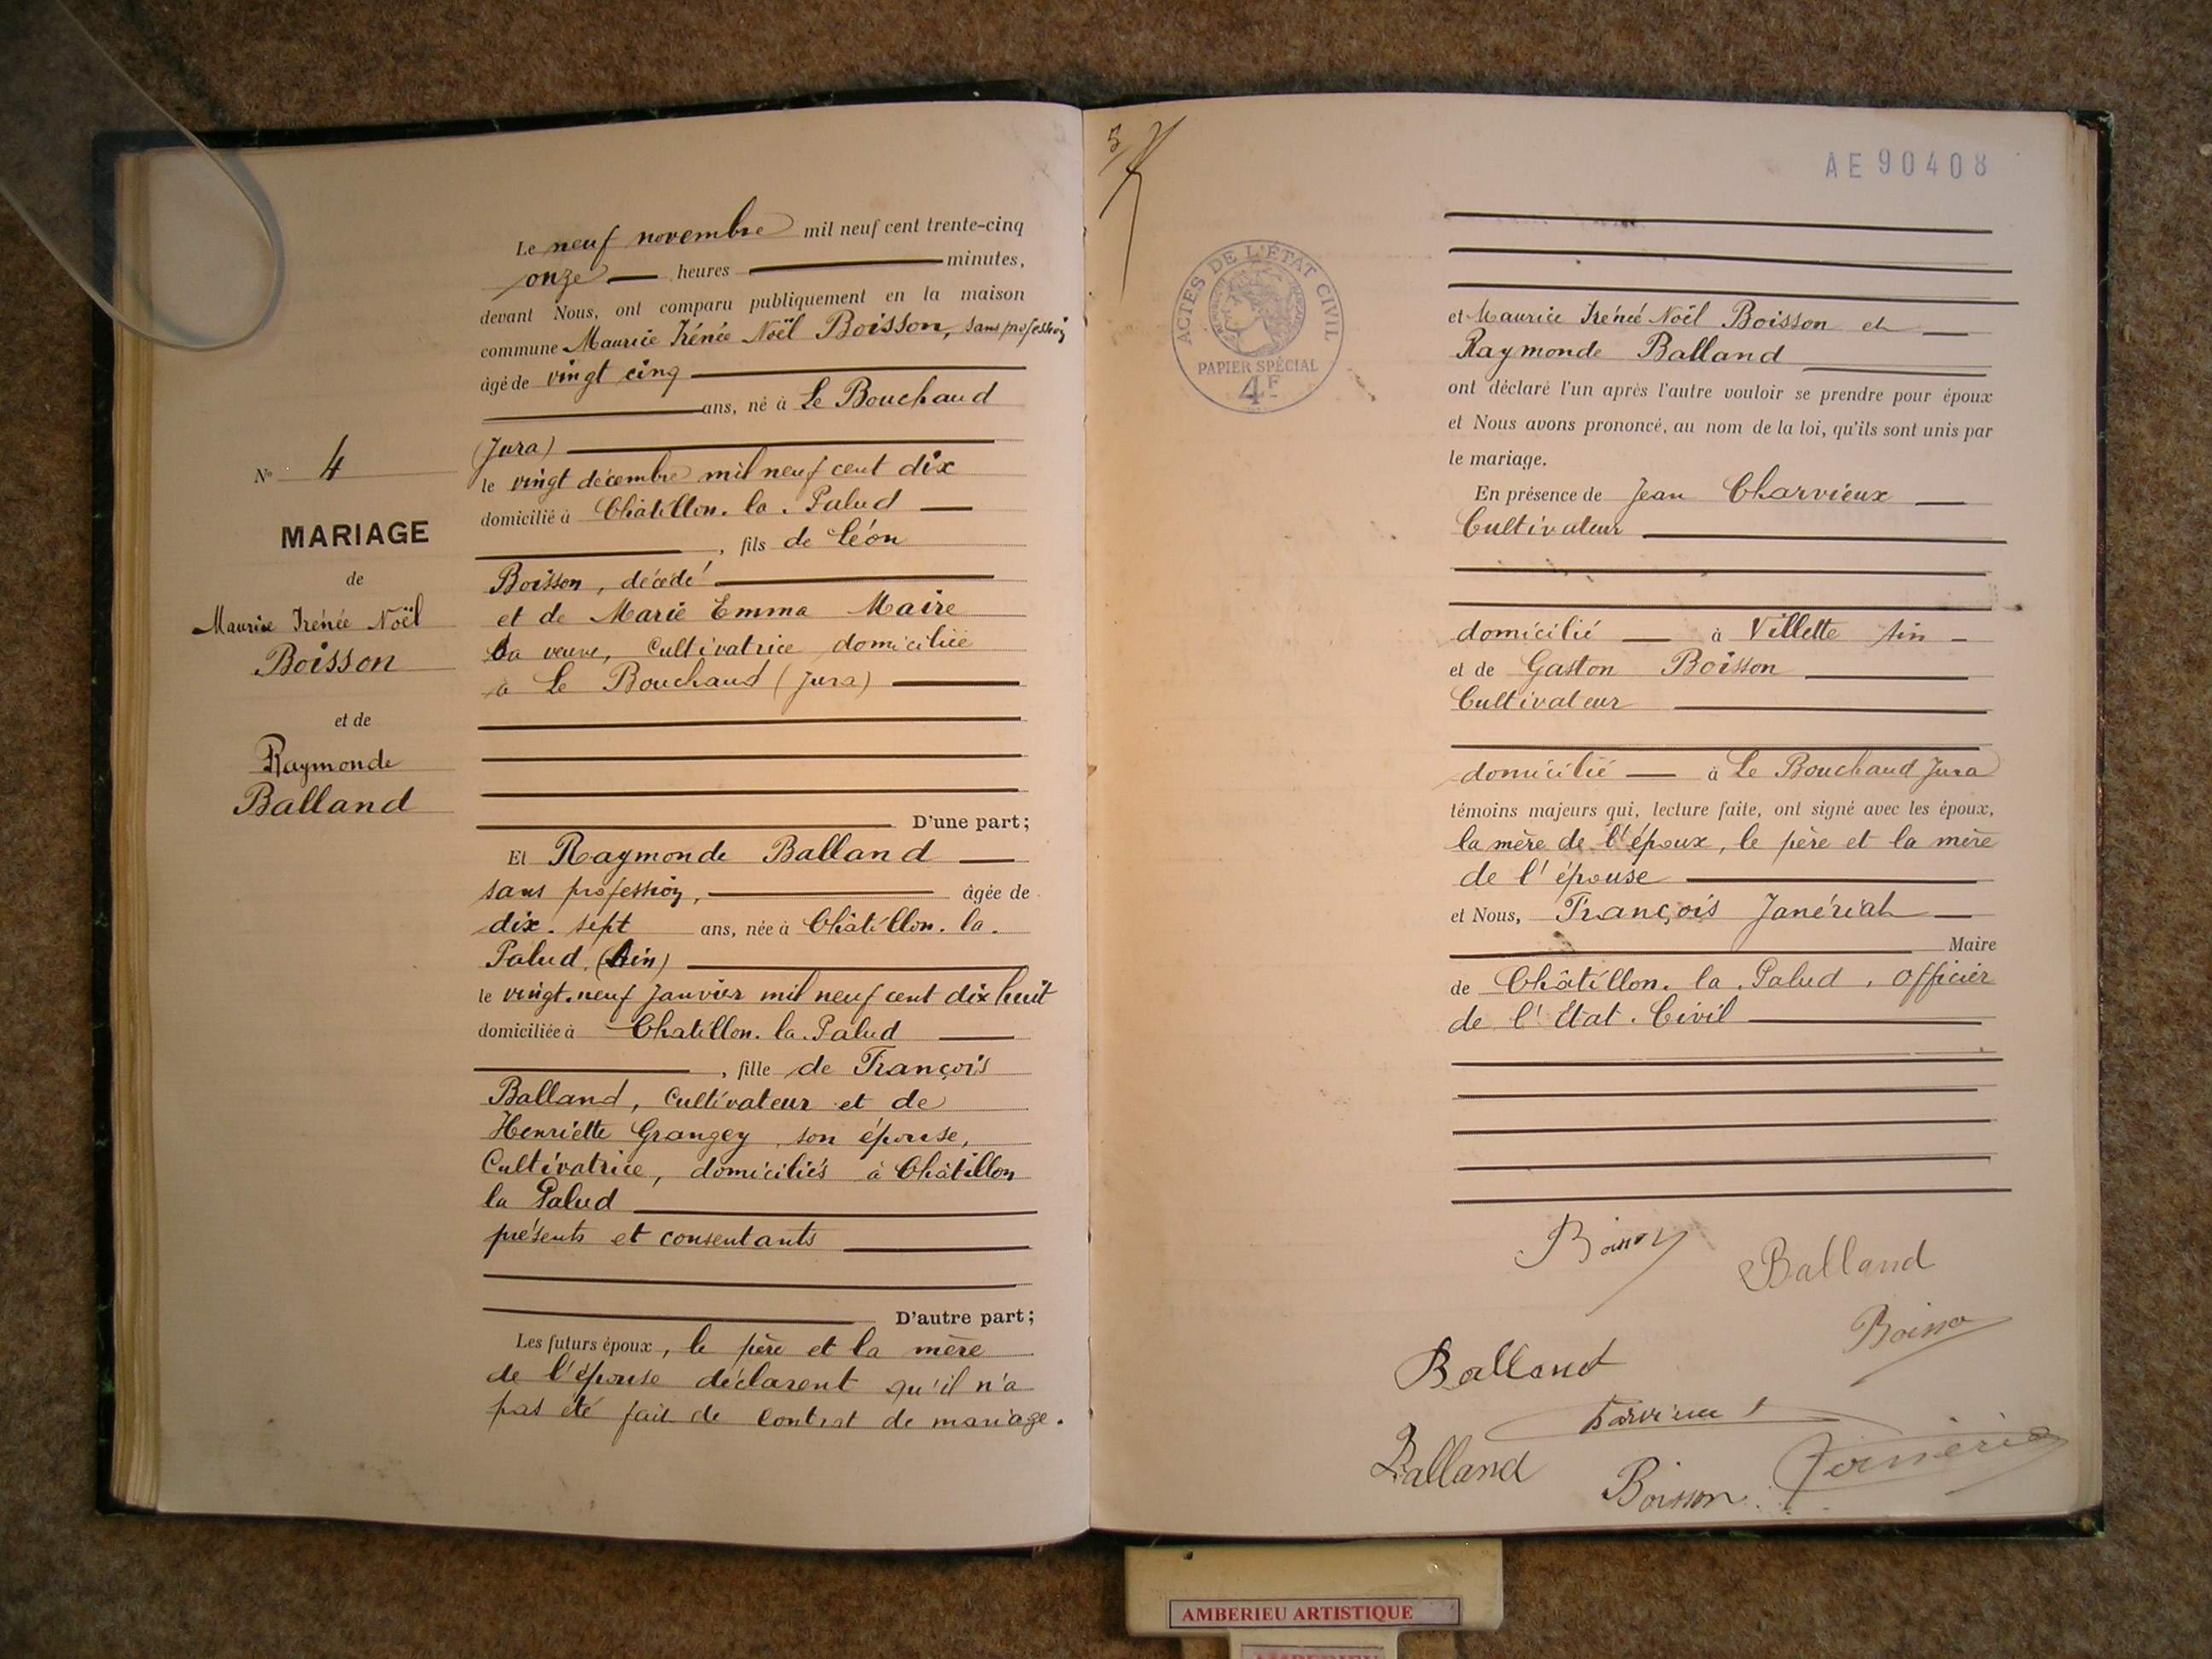 Le neuf novembre mil neuf cent trente-cinq
onze heures minutes,
devant Nous, ont comparu publiquement en la maison
commune Maurice Irénée Noël Boisson, sans profession
âgé de vingt cinq
ans, né à Le Bouchaud
(Jura)
le vingt décembre mil neuf cent dix
domicilié à Châtillon. la. Palud
, fils de Léon
Boisson, décédé
et de Marie Emma Maire
sa veuve, Cultivatrice domiciliée
à Le Bouchaud (Jura)
D'une part;
Et Raymonde Balland
sans profession, âgée de
dix. sept ans, née à Châtillon. la.
Palud. (Ain)
le vingt. neuf Janvier mil neuf cent dix huit
domiciliée à Chatillon. la. Palud
, fille de François
Balland, Cultivateur et de
Henriette Grangey son épouse,
Cultivatrice, domiciliés à Châtillon
la Palud
présents et consentants
D'autre part;
Les futurs époux, le père et la mère
de l'épouse déclarent qu'il n'a
pas été fait de contrat de mariage.
N° 4
MARIAGE
de
Maurice Irénée Noël
Boisson
et de
Raymonde
Balland
AE 90408
ACTES DE L'ÉTAT CIVIL
PAPIER SPÉCIAL
4F
et Maurice Irénée Noël Boisson et
Raymonde Balland
ont déclaré l'un après l'autre vouloir se prendre pour époux
et Nous avons prononcé, au nom de la loi, qu'ils sont unis par
le mariage.
En présence de Jean Charvieux
Cultivateur
domicilié à Villette Ain
et de Gaston Boisson
Cultivateur
domicilié à Le Bouchaud Jura
témoins majeurs qui, lecture faite, ont signé avec les époux,
la mère de l'époux, le père et la mère
de l'épouse
et Nous, François Janériat
Maire
de Châtillon. la. Palud, Officier
de l'État. Civil
Balland
Balland
Balland
Boisson
AMBERIEU ARTISTIQUE
AMBERIEU